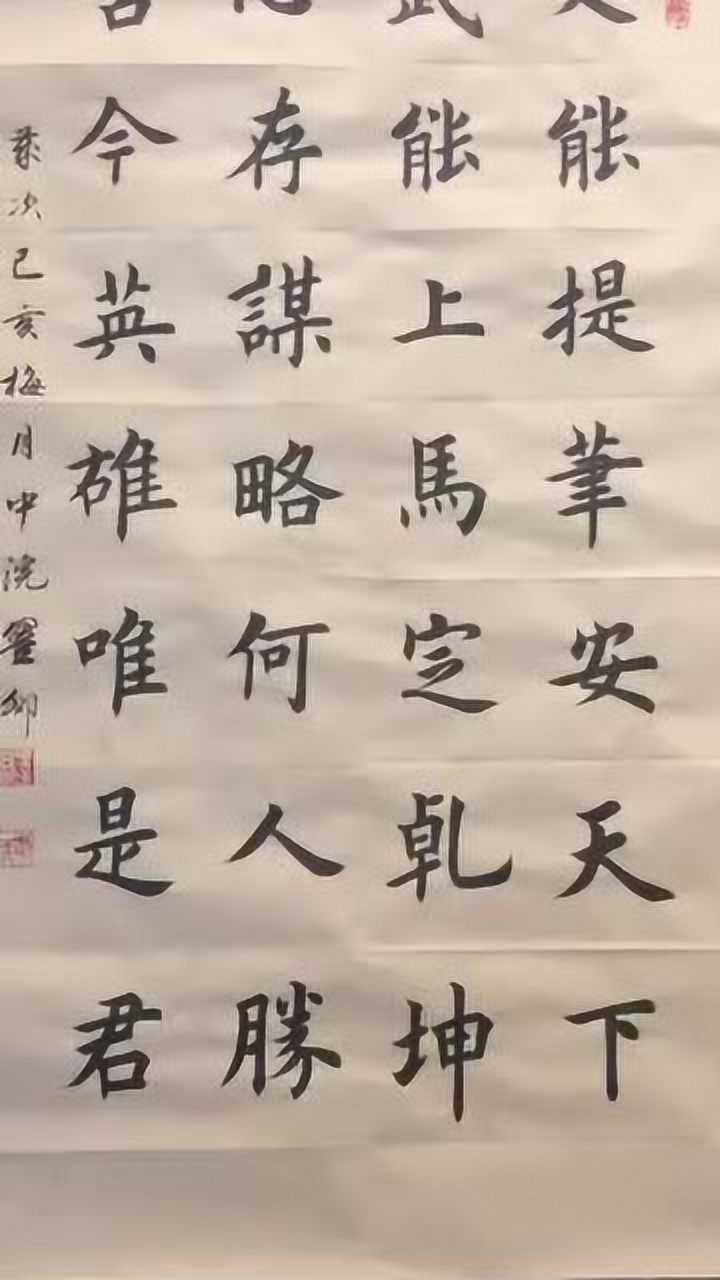 文能提筆安天下
武能上馬定乾坤
心存謀略何人勝
古今英雄唯是君
歲次己亥梅月中浣